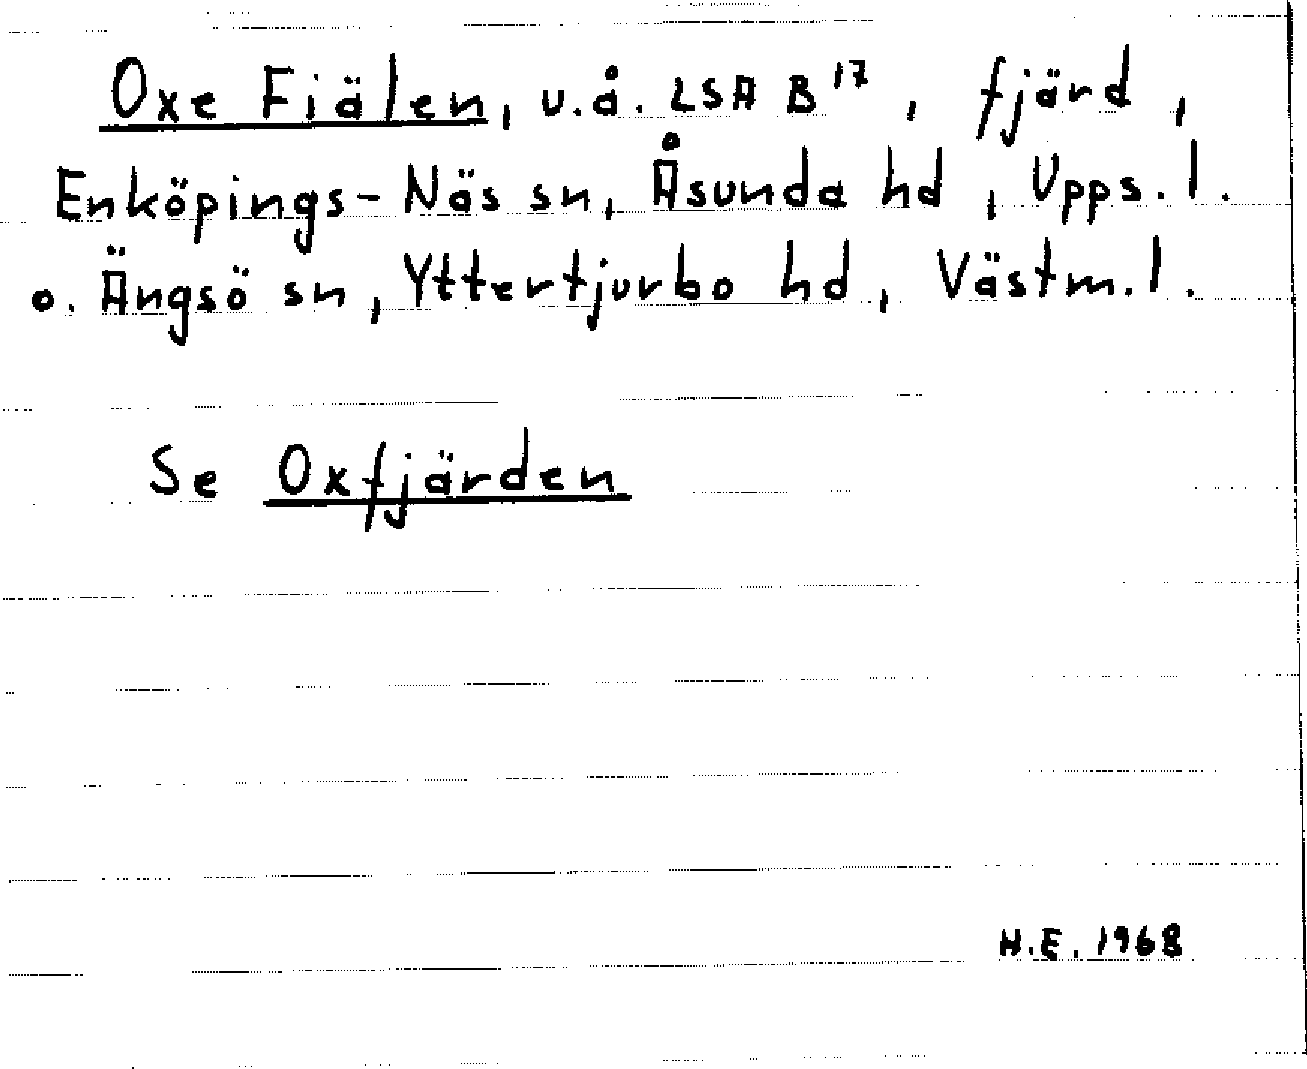 Oxe Fiälen, u.å. LSA B¹⁷, fjärd,
Enköpings-Näs sn, Åsunda hd, Upps.l.
o. Ängsö sn, Yttertjurbo hd, Västm.l.
Se Oxfjärden
H.E. 1968